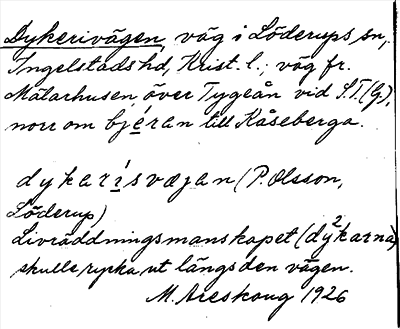 Dykerivägen, väg i Löderups sn,
Ingelstads hd, Krist. l.; väg fr.
Mälarhusen över Tygeån vid S.T.(G),
norr om bjéran till Kåseberga.
dykarísvæjan (P. Olsson,
Löderup)
Livräddningsmanskapet (dy²karna)
skulle rycka ut längs den vägen.
M. Areskoug 1926